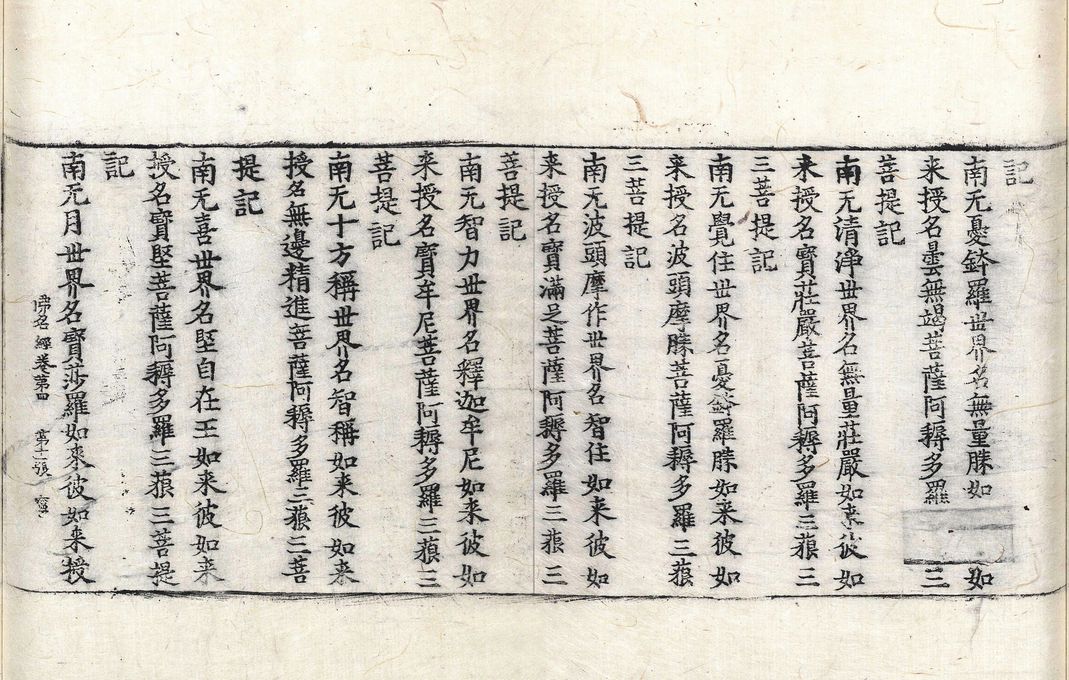 記
南无憂鉢羅世界名無量勝如如
来授名曇無竭菩薩阿耨多羅三
菩提記
南无清淨世界名無量莊嚴如来彼如
来授名寳莊嚴菩薩阿耨多羅三藐三
三菩提記
南无覺住世界名憂鉢羅勝如来彼如
来授名波頭摩勝菩薩阿耨多羅三藐
三菩提記
南无波頭摩作世界名智住如来彼如
来授名寳滿足菩薩阿耨多羅三藐三
菩提記
南无智力世界名釋迦牟尼如来彼如
来授名寳牟尼菩薩阿耨多羅三藐三
菩提記
南无十方稱世界名智稱如来彼如来
授名無邊精進菩薩阿耨多羅三藐三菩
提記
南无喜世界名堅自在王如来彼如来
授名寳堅菩薩阿耨多羅三藐三菩提
記
佛名經卷第四 第十二張
南无月世界名寳莎羅如来彼如来授